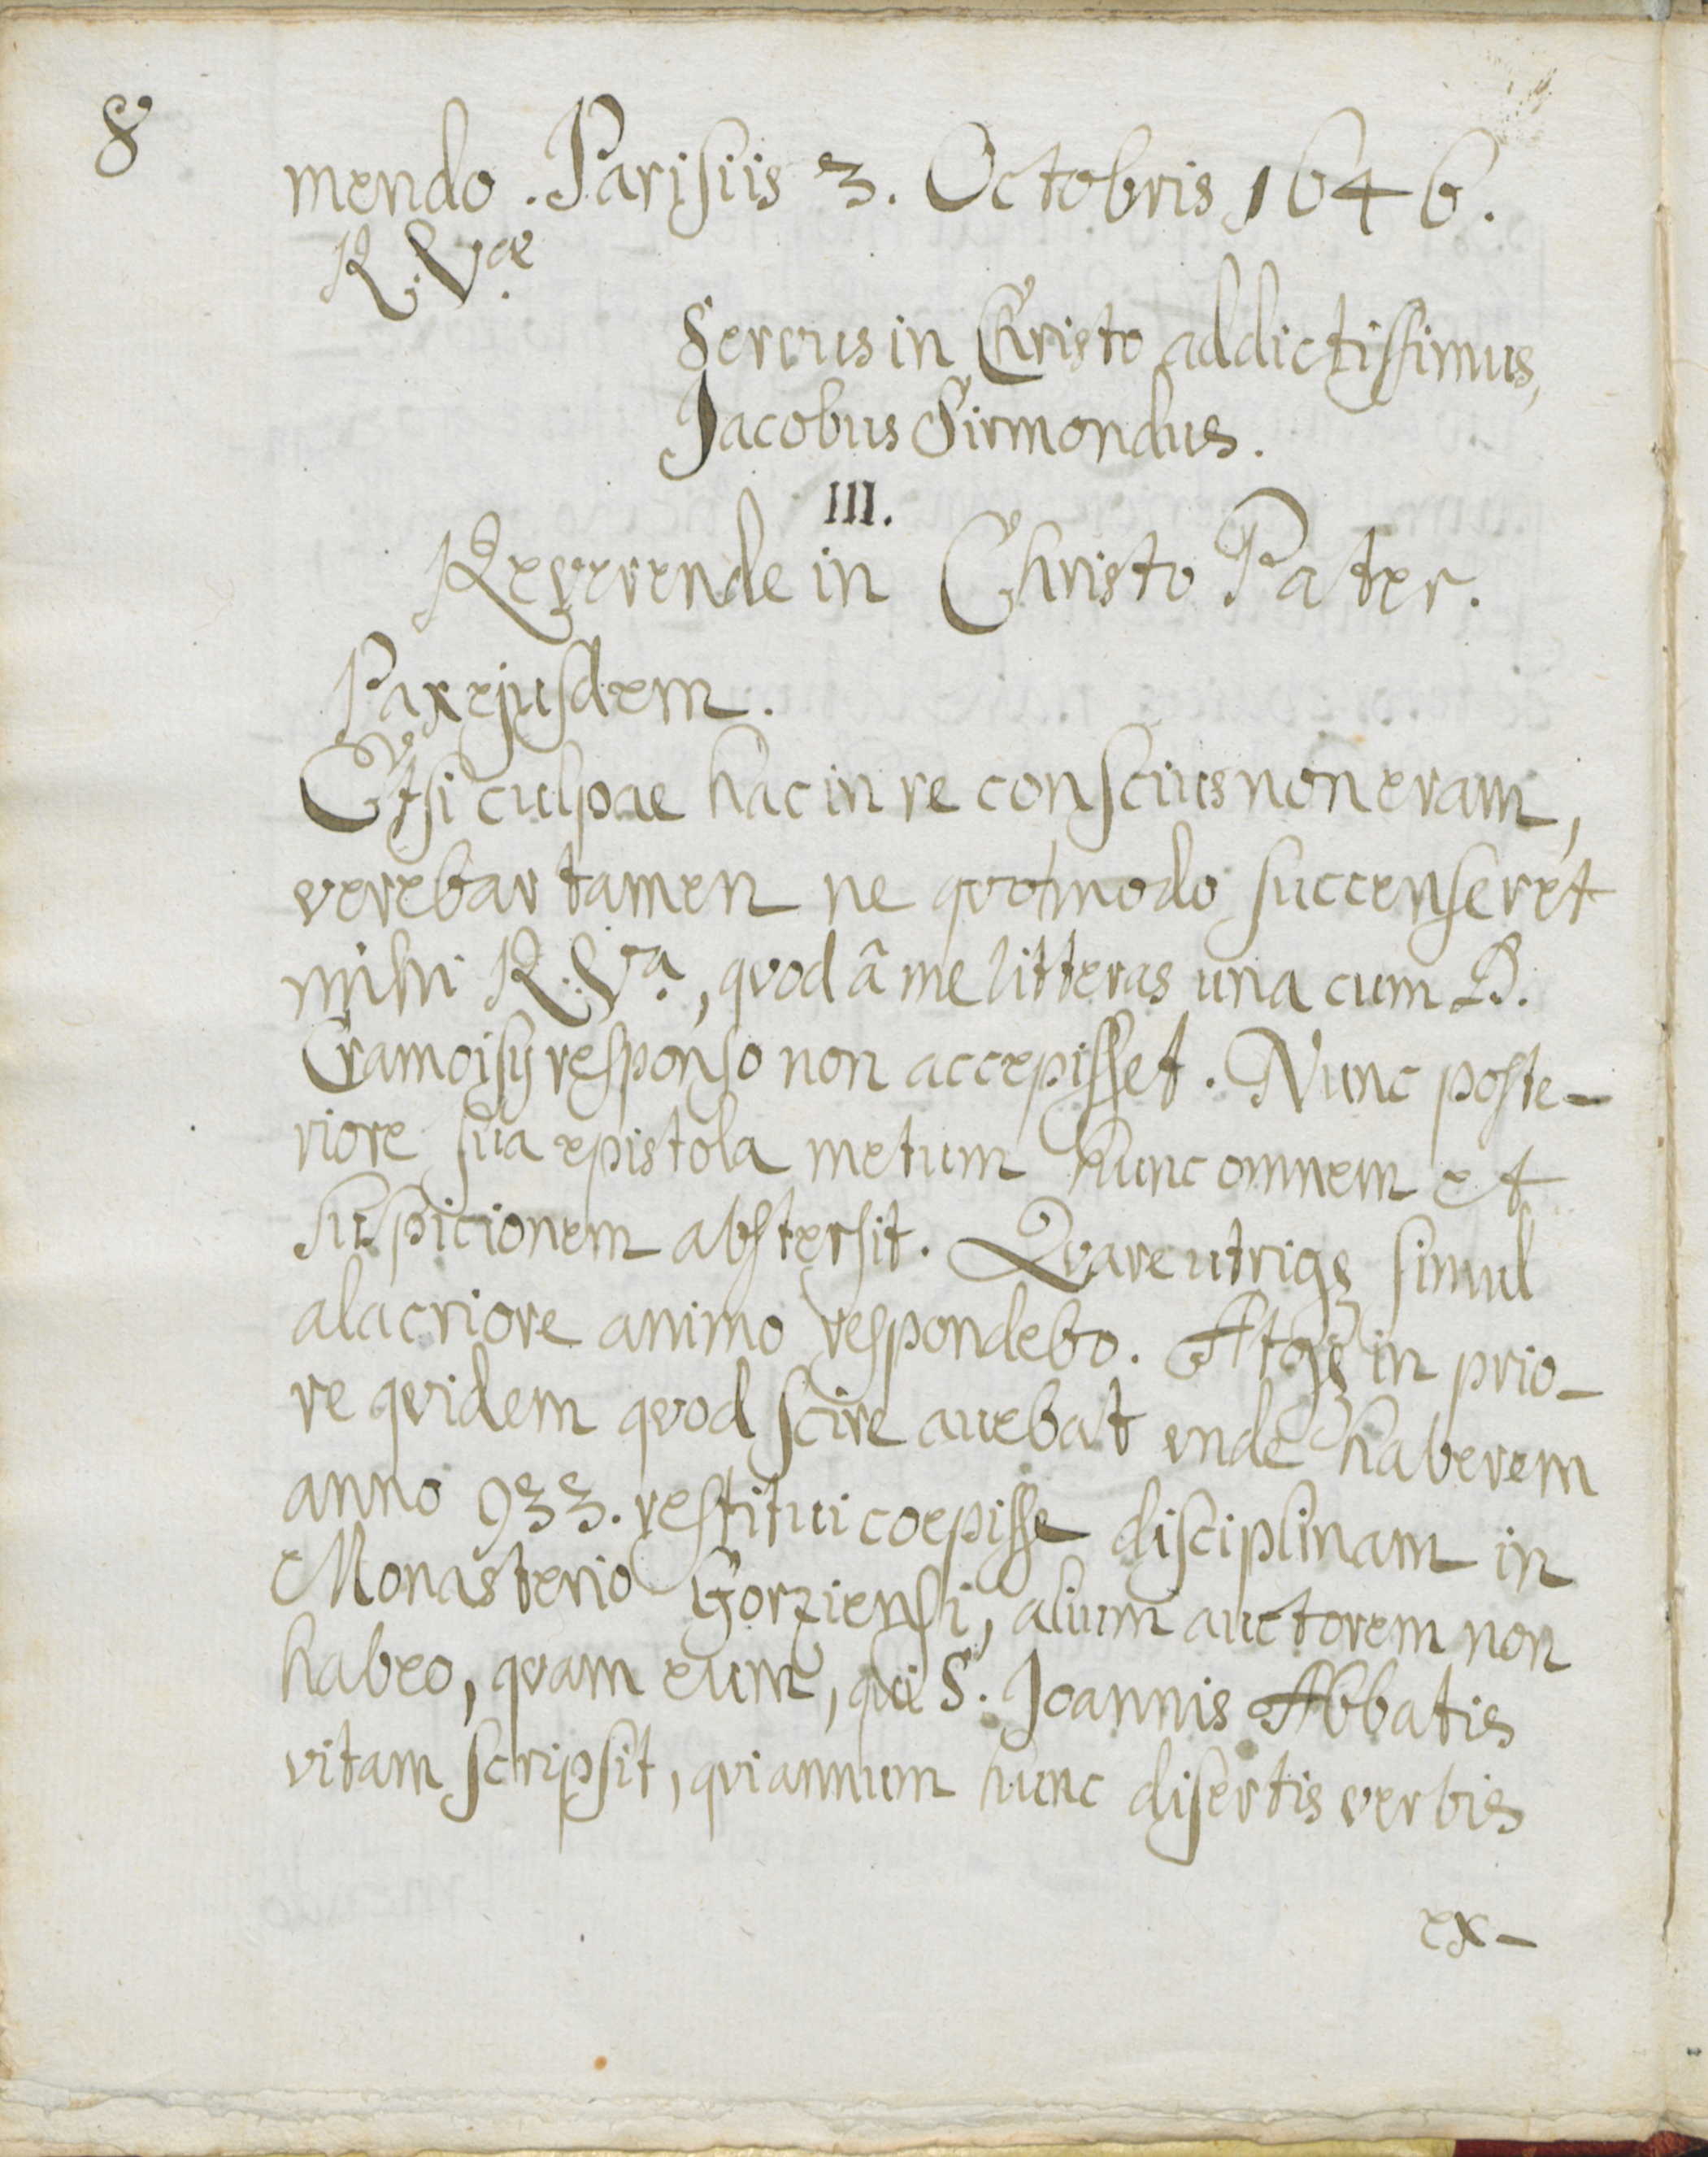 8
mendo. Parisiis 3. Octobris 1646.
R. Vae.
Servus in Christo addictissimus,
Jacobus Sirmondus.
III.
Reverende in Christo Pater.
Pax ejusdem.
Etsi culpae hac in re conscius non eram,
verebar tamen ne quomodo succenseret
mihi R. Va., quod â me litteras una cum D.
Cramoisÿ responso non accepisset. Nunc poste-
riore sua epistola metum hunc omnem et
suspicionem abstersit. Quare utrique simul
alacriore animo respondebo. Atque in prio-
re quidem quod scire auebat unde haberem
anno 933. restitui coepisse disciplinam in
Monasterio Gorziensi, alium auctorem non
habeo, quam eum, qui S. Joannis Abbatis
vitam scripsit, qui annum hunc disertis verbis
ex-